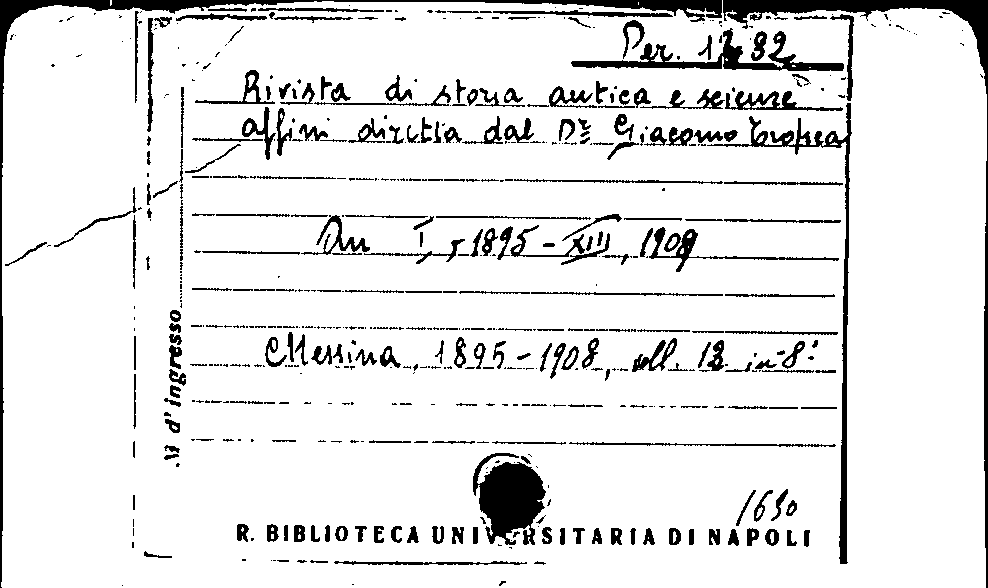 Per.
Rivista di storia antica e scienze
affini diretta dal Dr Giacomo Tropea
An I, 1895-XIII, 1908
Messina, 1895-1908, voll. in-8°
1630
N d'ingresso
R. BIBLIOTECA UNIVERSITARIA DI NAPOLI